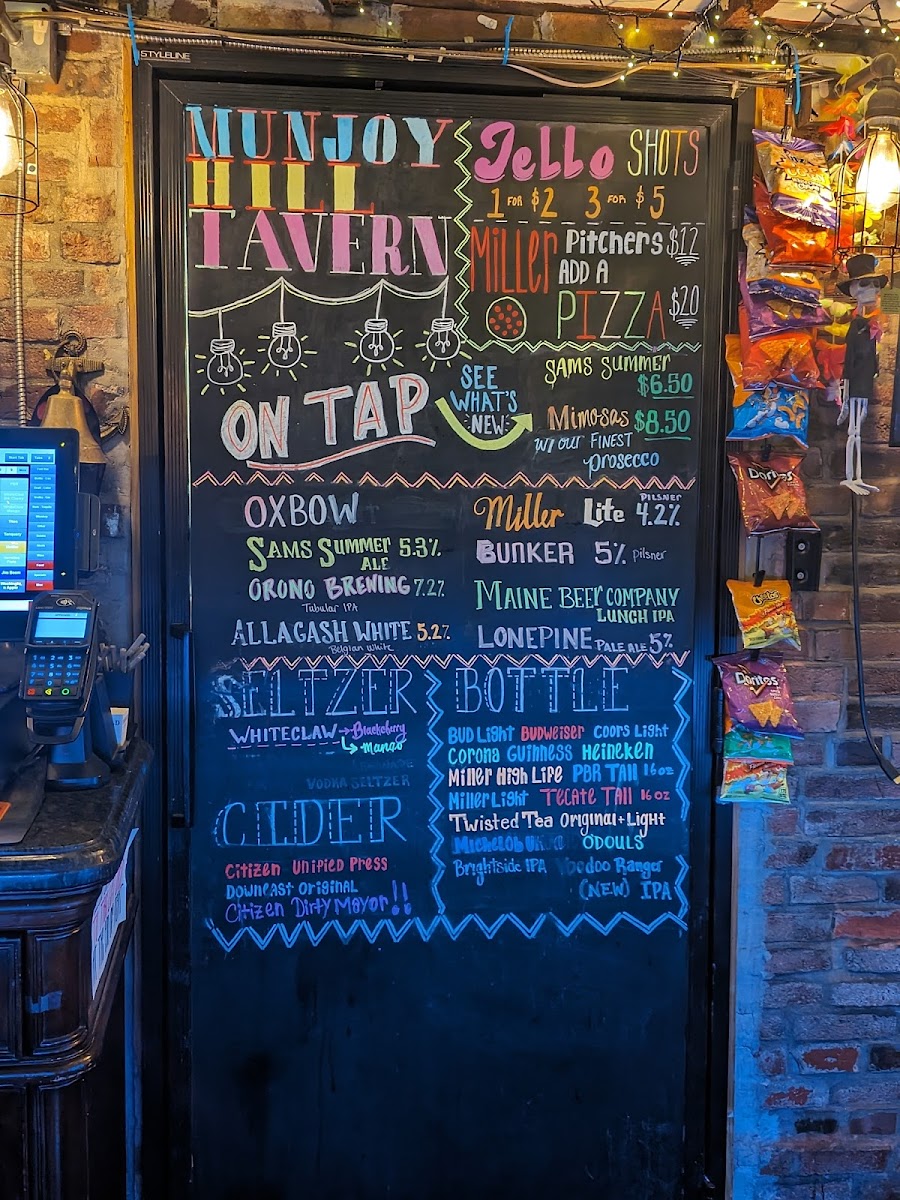 STYLELINE
MUNJOY
HILL
TAVERN
Jello SHOTS
1 FOR $2 3 FOR $5
Miller Pitchers $12
ADD A
PIZZA $20
ON TAP
SEE
WHAT'S
NEW
SAMS SUMMER
$6.50
Mimosas $8.50
w/ our FINEST
prosecco
OXBOW
SAMS SUMMER 5.3%
ALE
ORONO BREWING 7.2%
Tubular IPA
ALLAGASH WHITE 5.2%
Belgian White
Miller Lite PILSNER 4.2%
BUNKER 5% pilsner
MAINE BEER COMPANY
LUNCH IPA
LONEPINE PALE ALE 5%
SELTZER
WHITECLAW Blackberry
Mango
VODKA SELTZER
CIDER
Citizen Unified Press
Downeast Original
Citizen Dirty Mayor!!
BOTTLE
Bud Light Budweiser Coors Light
Corona Guinness Heineken
Miller High Life PBR Tall 16oz
Miller Light Tecate Tall 16 oz
Twisted Tea Original + Light
Michelob O'DOULS
Brightside IPA Voodoo Ranger
(NEW) IPA
Doritos
Cheetos
Doritos